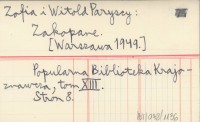 Zofia i Witold Paryscy:
Zakopane.
[Warszawa 1949.]
Popularna Biblioteka Krajo-
znawcza, tom XIII.
Stron 8.